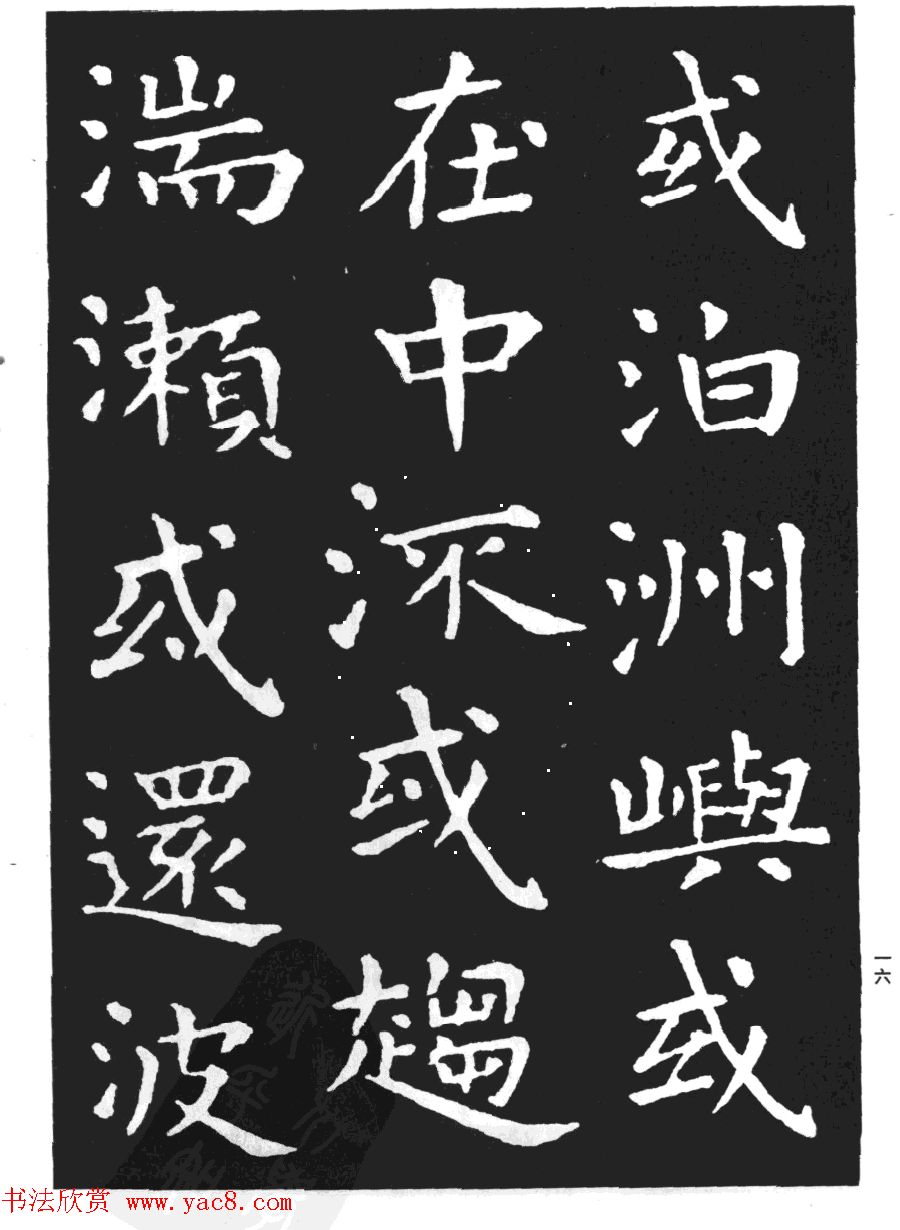 或泊洲嶼或
在中㳅或趨
湍瀨或還波
一六
书法欣赏 www.yac8.com